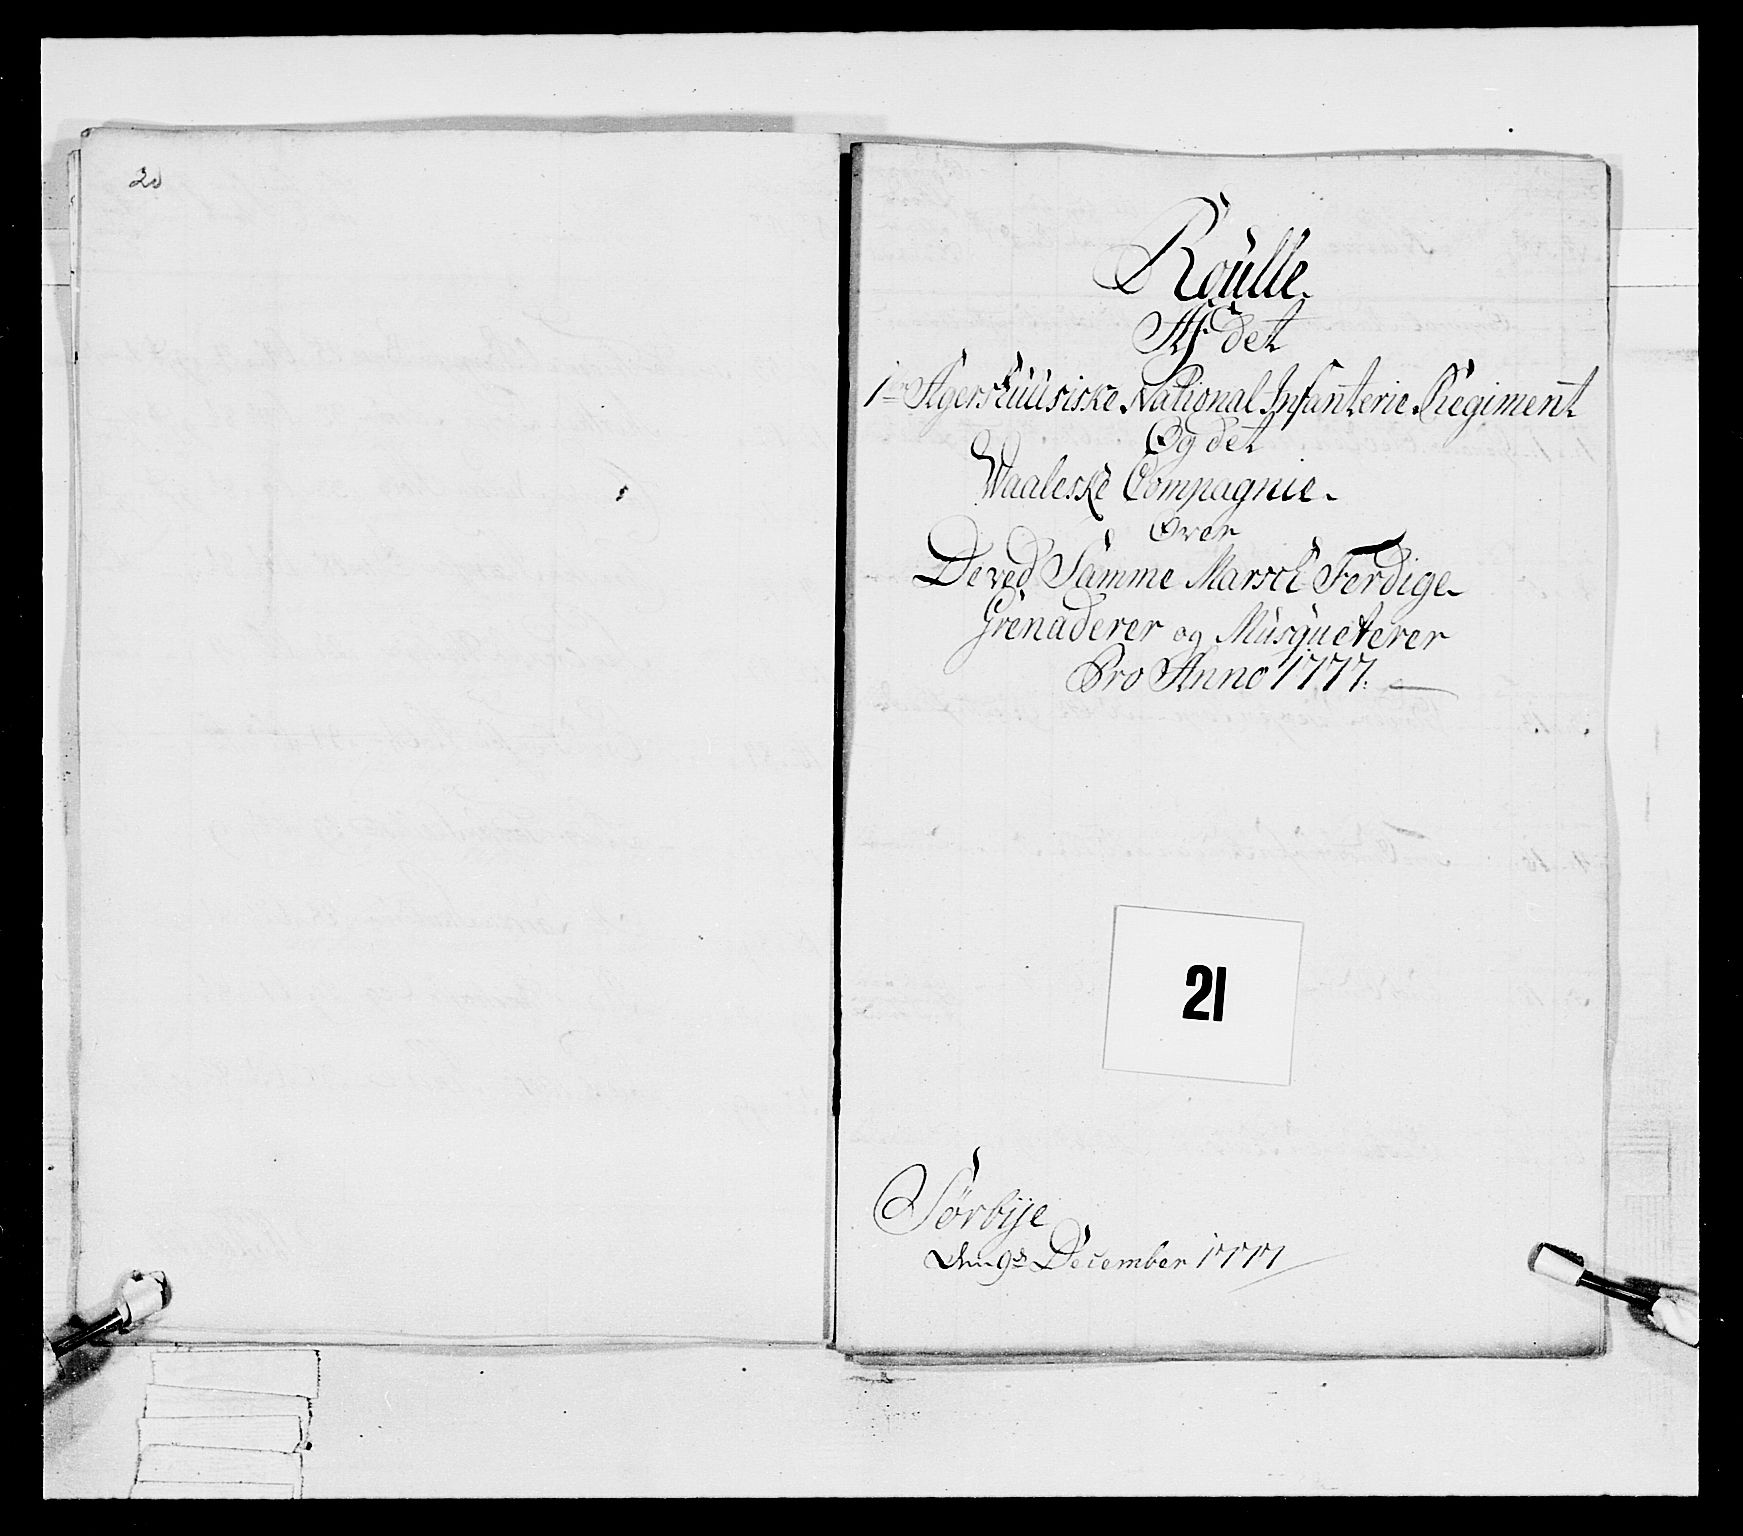 20
Roulle.
Af det
1ste Agershuusiske National Infanterie Regiment
Og det
Waaleske Compagnie.
Over
De ved Samme Marsch Ferdige
Grenaderer og Musqueterer
Pro Anno 1777.
21
Sørbÿe
den 9de December 1777